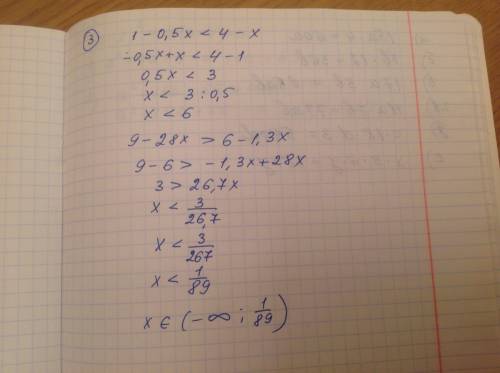 3
1 - 0,5x < 4 - x
-0,5x + x < 4 - 1
0,5x < 3
x < 3 : 0,5
x < 6
9 - 28x > 6 - 1,3x
9 - 6 > -1,3x + 28x
3 > 26,7x
x < 3/26,7
x < 3/267
x < 1/89
x ∈ (-∞ ; 1/89)